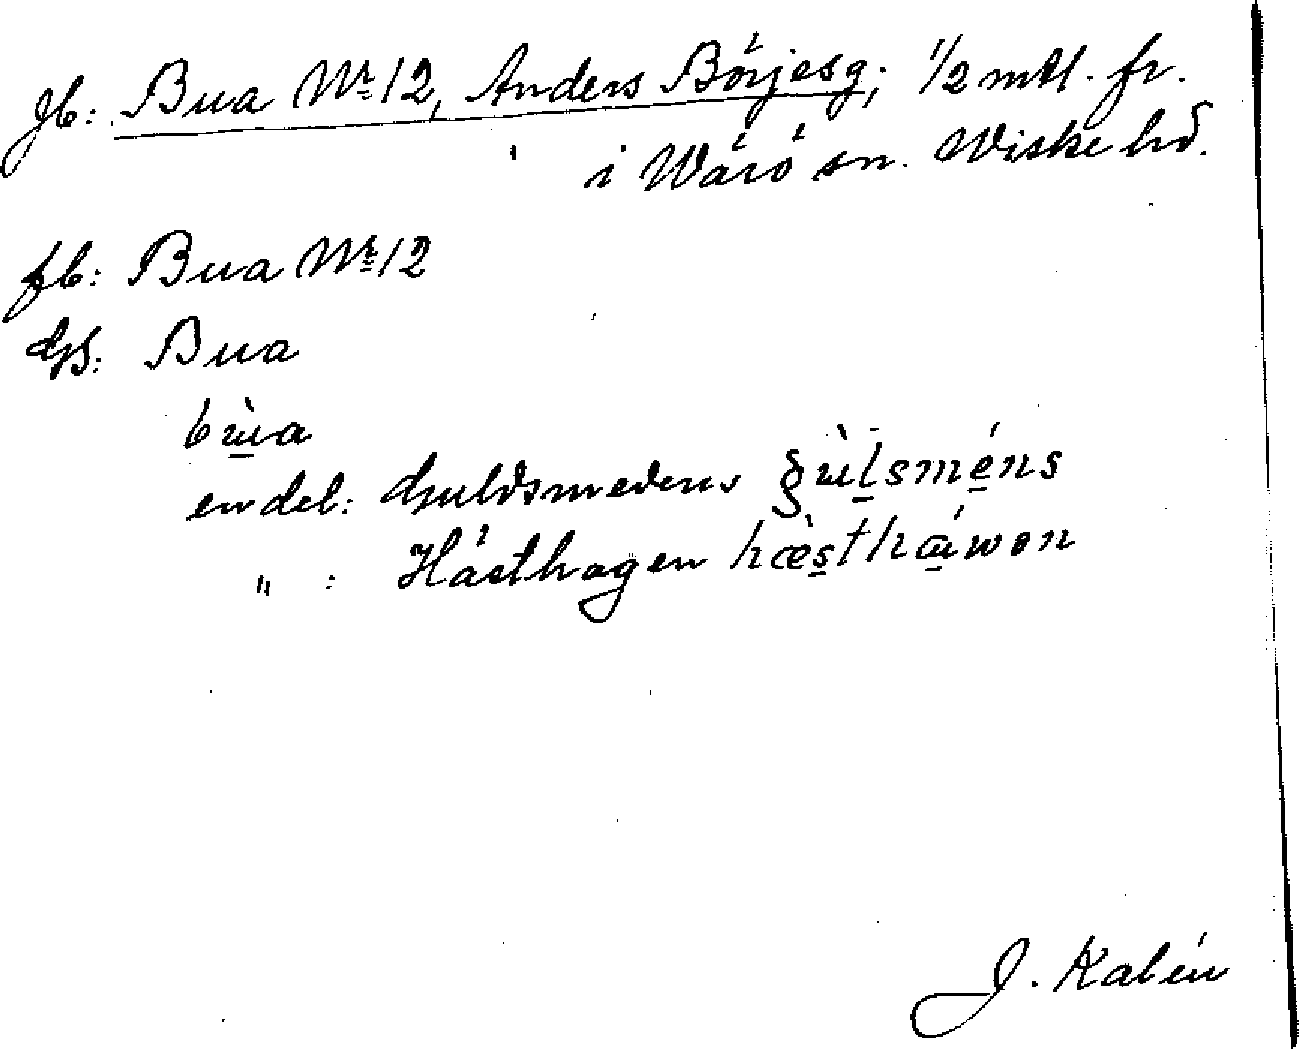 Jb: Bua Nr 12, Anders Börjesg; 1/2 mtl. fr.
i Wärö sn. Wiske hd.
fb: Bua Nr 12
GS: Bua
bùa
en del: Guldsmedens gùlsméns
" : Hästhagen hæ̀stháwen
J. Kalén